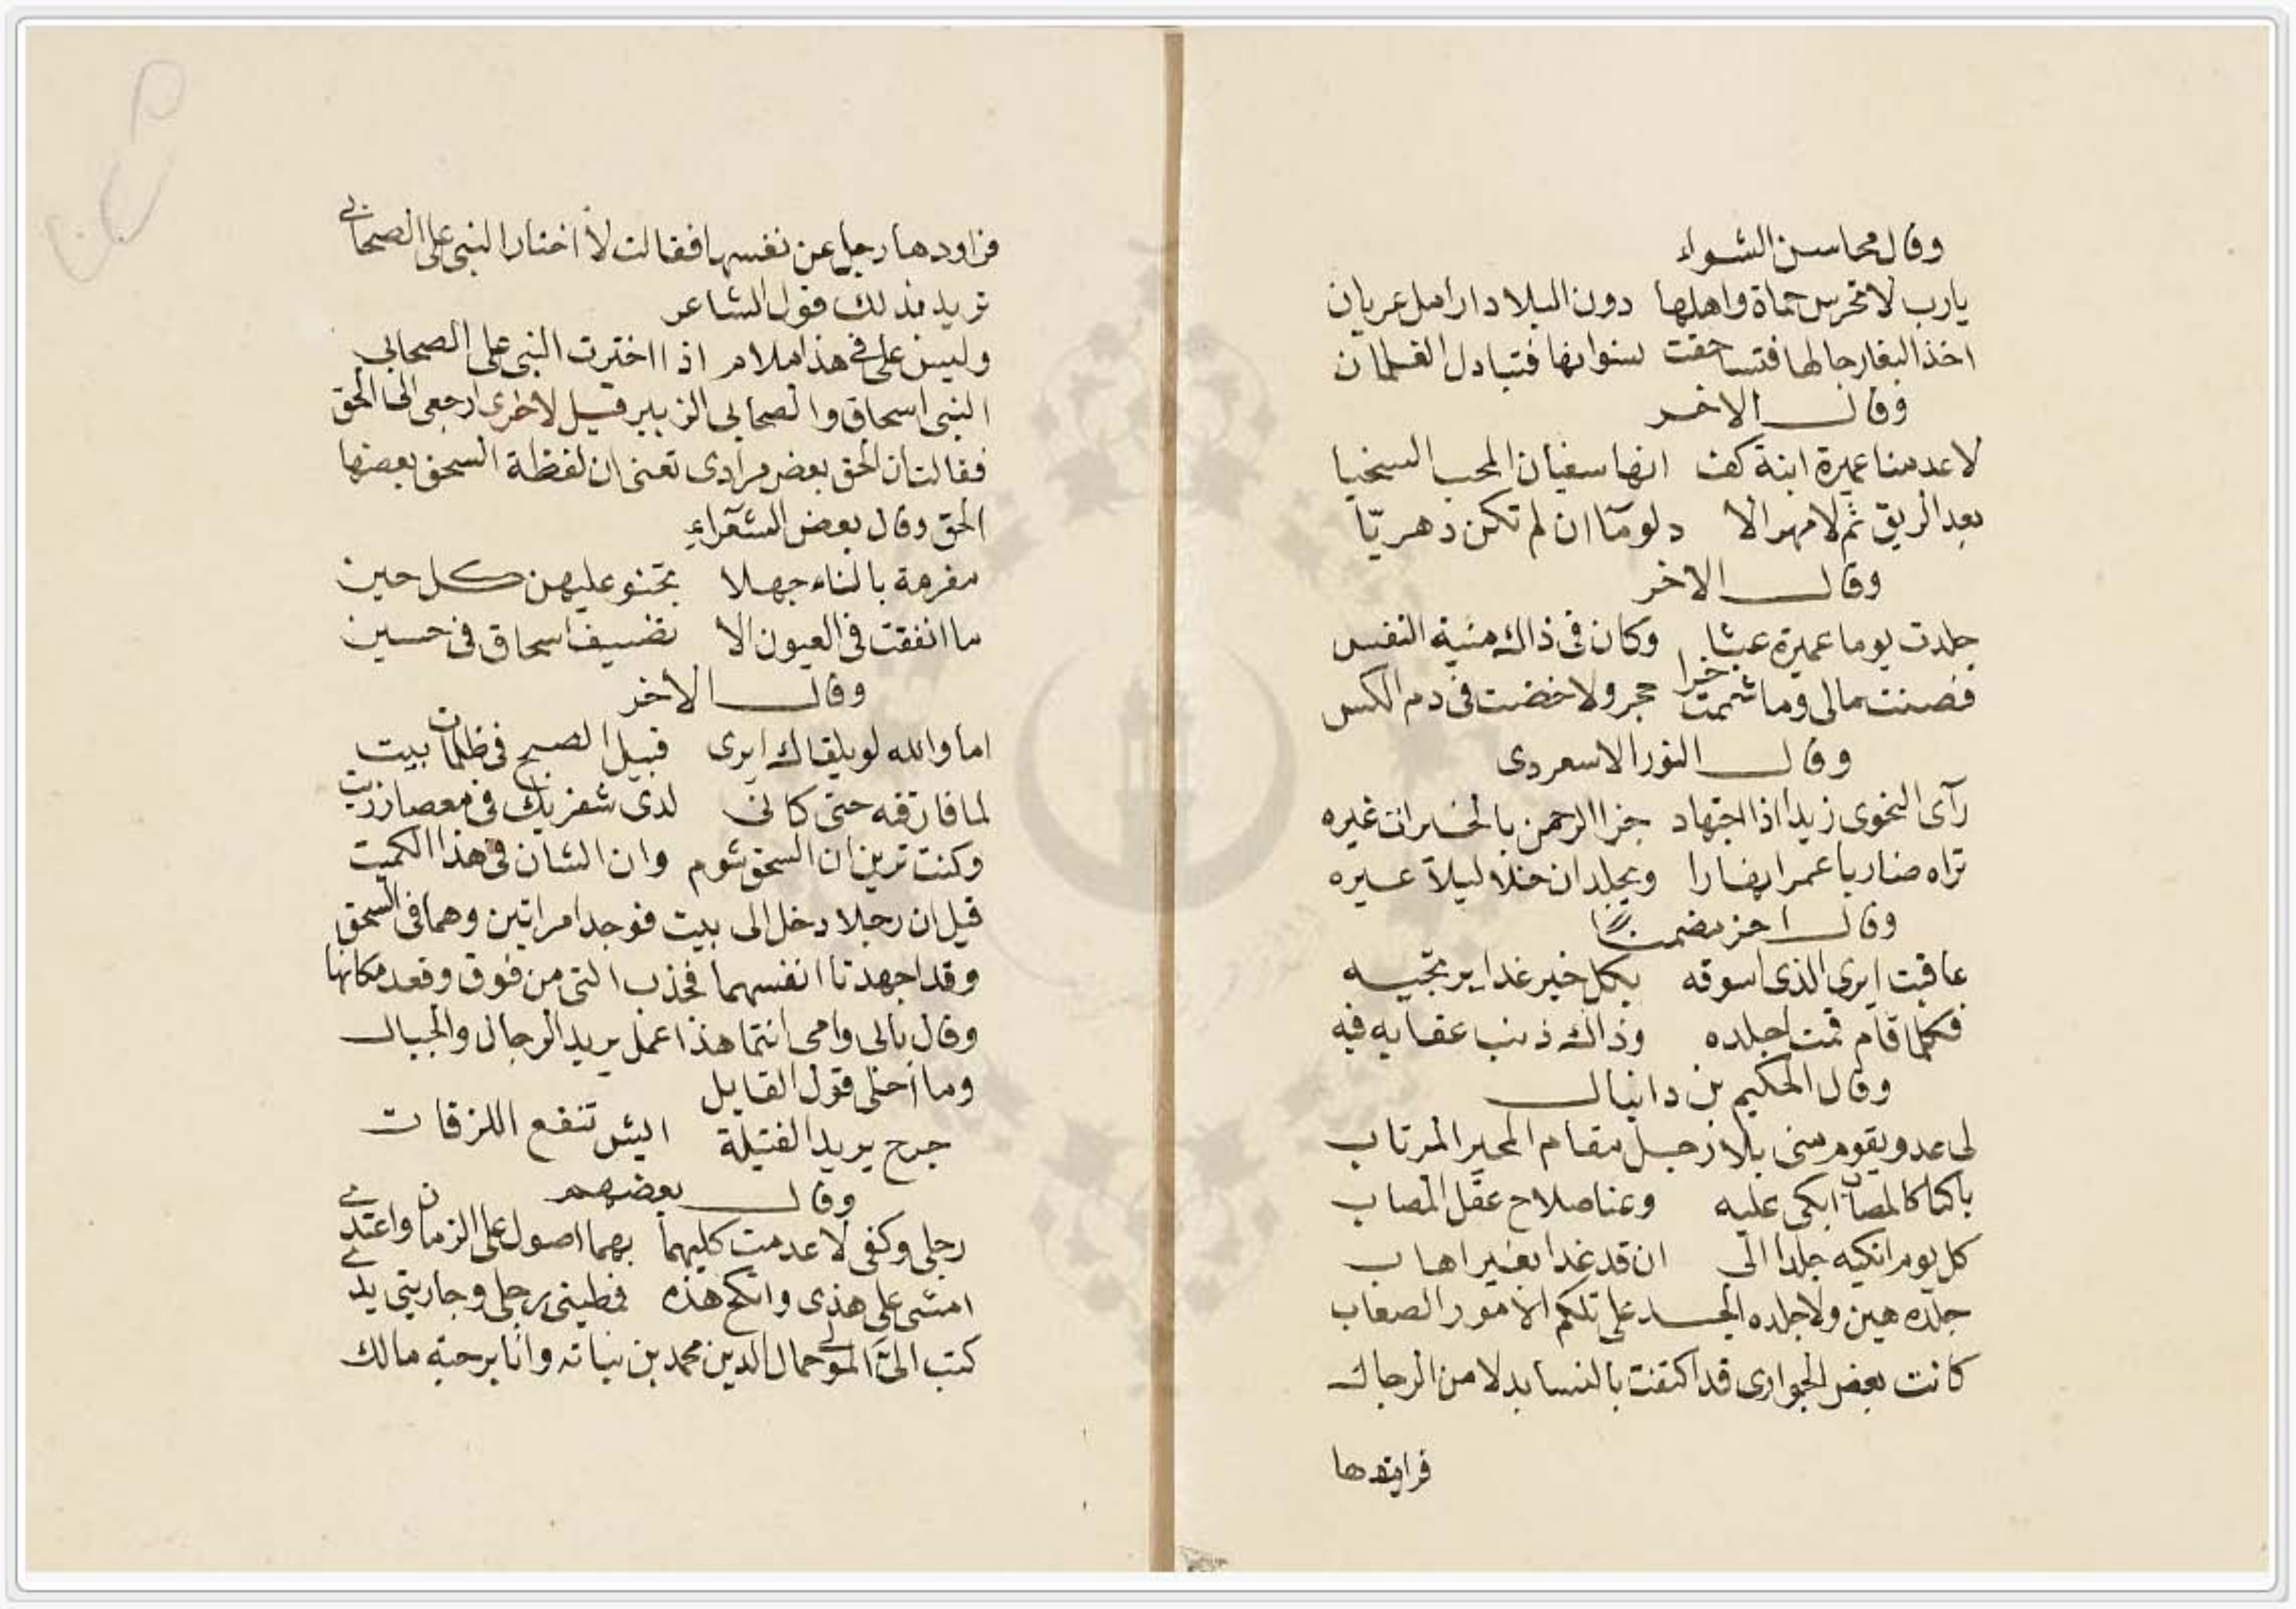 وقال محاسن الشواء
يارب لا تحرس حماة واهلها دون البلاد ارامل عريان
اخذ البغا رجالها فتساحقت نسوانها فتبادل الغلمان
وقال الاخر
لا عدمنا عميرة ابنة كف انها سفيان المحب السخيا
بعد الريق ثم لا مهر الا دلوماً ان لم تكن دهريّا
وقال الاخر
جلدت يوما عميرة عبثا وكان فى ذاك منية النفس
فصنت مالى وما شممت خرا حجر ولا خضت فى دم الكس
وقال النور الاسعردى
رآى النحوى زيدا اذا اجتهاد جزا الرحمن بالخيرات غيره
تراه ضاربا عمرا نهارا ويجلد ان خلا ليلا عسيره
وقال اخر مضمنًا
عاقبت ايرى الذى اسوقه بكل خير غدا يرجيه
فكلما قام قمت اجلده وذاك ذنب عقابه فيه
وقال الحكيم بن دانيال
لى عدو يقوم منى بلا رجل مقام المحير المرتاب
باكيا كالمصاب ابكى عليه وعنا صلاح عقل المصاب
كل يوم انكيه جلدا الى ان قد غدا بغير اهاب
جلده هين ولا جلده الجلد على تلكم الامور الصعاب
كانت بعض الجوارى قد اكتفت بالنسا بدلا من الرجال
فراودها
فراودها رجل عن نفسها فقالت لا اختار النبى على الصحابى
تريد بذلك قول الشاعر
وليس على فى هذا ملام اذا اخترت النبى على الصحابى
النبى اسحاق والصحابى الزبير قيل لاخرى ارجعى الى الحق
فقالت ان الحق بعض مرادى تعنى ان لفظة السحق بعضها
الحق وقال بعض الشعراء
مغرمة بالنساء جهلا تحنو عليهن كل حين
ما انفقت فى العيون الا تضيف اسحاق فى حسين
وقال الاخر
اما والله لو يلقاك ايرى قبيل الصبح فى ظلمات بيت
لما فارقته حتى كانى لدى شفريك فى معصار زيت
وكنت ترين ان السحق شوم وان الشان فى هذا الكميت
قيل ان رجلا دخل الى بيت فوجد امراتين وهما فى السحق
وقد اجهدتا انفسهما فجذب التى من فوق وقعد مكانها
وقال بابى وامى انتما هذا عمل يريد الرجال والجبال
وما احلى قول القايل
جرح يريد الفتيلة ايش تنفع اللزقات
وقال بعضهم
رجلى وكفى لا عدمت كليهما بهما اصول على الزمان واعتدى
امشى على هذى وانكح هذه فمطيتى رجلى وجاريتى يدى
كتب الىّ المولى جمال الدين محمد بن نباته وانا برحبة مالك